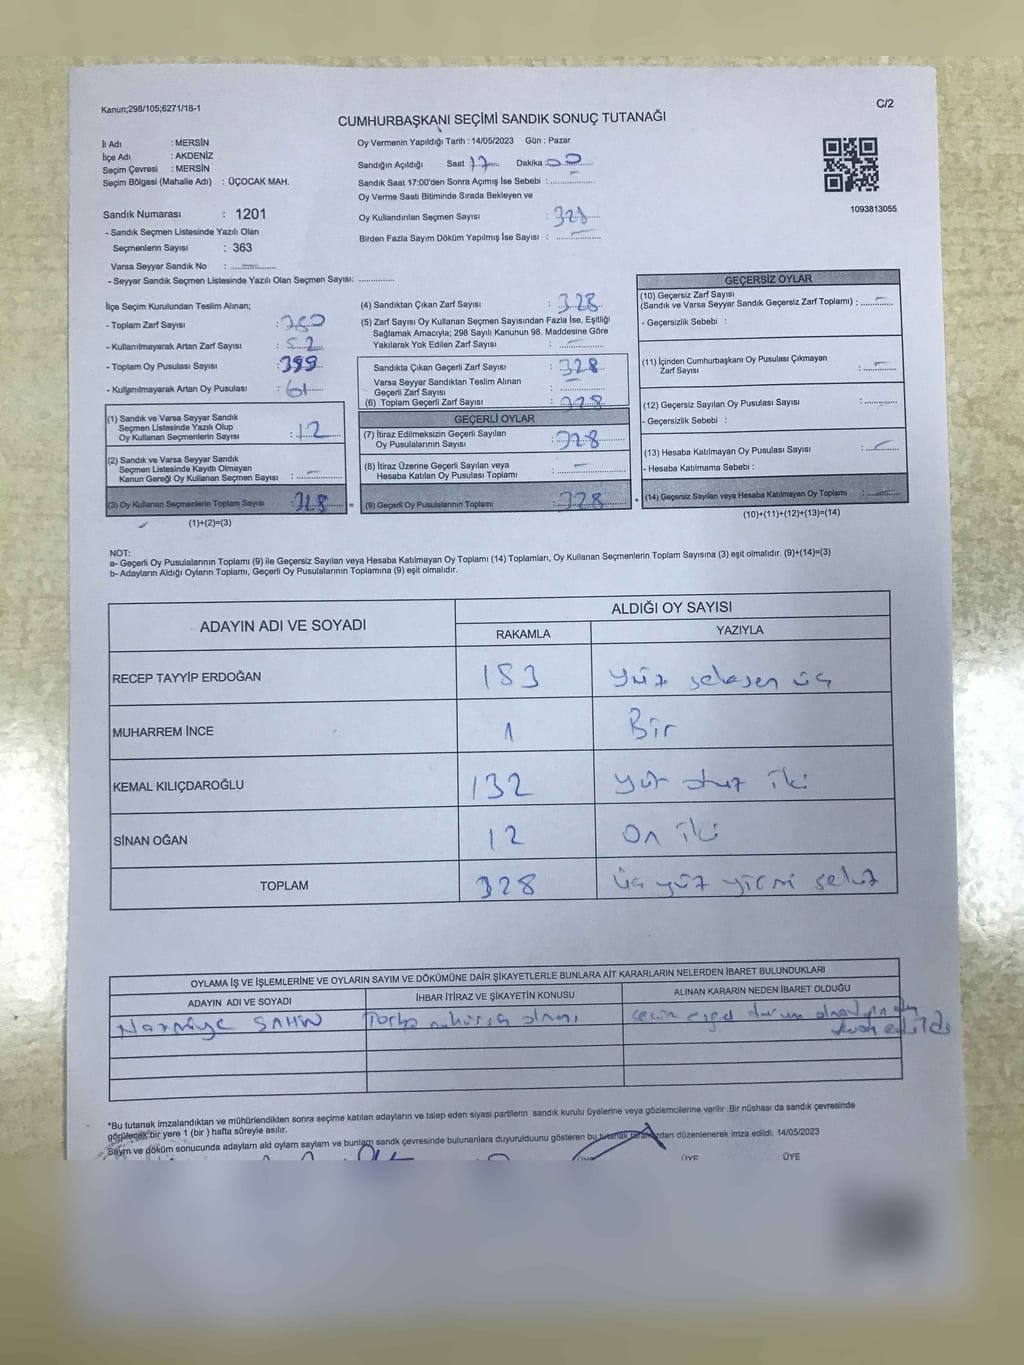 Kanun;298/105;6271/18-1
C/2
CUMHURBAŞKANI SEÇİMİ SANDIK SONUÇ TUTANAĞI
İl Adı : MERSİN
İlçe Adı : AKDENİZ
Seçim Çevresi : MERSİN
Seçim Bölgesi (Mahalle Adı) : ÜÇOCAK MAH.
Sandık Numarası : 1201
- Sandık Seçmen Listesinde Yazılı Olan
Seçmenlerin Sayısı : 363
Varsa Seyyar Sandık No :
- Seyyar Sandık Seçmen Listesinde Yazılı Olan Seçmen Sayısı:
Oy Vermenin Yapıldığı Tarih : 14/05/2023 Gün : Pazar
Sandığın Açıldığı Saat 17 Dakika : 00
Sandık Saat 17:00'den Sonra Açımış İse Sebebi :
Oy Verme Saati Bitiminde Sırada Bekleyen ve
Oy Kullandırılan Seçmen Sayısı : 328
Birden Fazla Sayım Döküm Yapılmış İse Sayısı :
1093813055
İlçe Seçim Kurulundan Teslim Alınan;
- Toplam Zarf Sayısı :
- Kullanılmayarak Artan Zarf Sayısı : 52
- Toplam Oy Pusulası Sayısı : 399
- Kullanılmayarak Artan Oy Pusulası : 61
(1) Sandık ve Varsa Seyyar Sandık
Seçmen Listesinde Yazılı Olup
Oy Kullanan Seçmenlerin Sayısı : 12
(2) Sandık ve Varsa Seyyar Sandık
Seçmen Listesinde Kayıtlı Olmayan
Kanun Gereği Oy Kullanan Seçmen Sayısı :
(3) Oy Kullanan Seçmenlerin Toplam Sayısı : 328
(1)+(2)=(3)
(4) Sandıktan Çıkan Zarf Sayısı : 328
(5) Zarf Sayısı Oy Kullanan Seçmen Sayısından Fazla İse, Eşitliği
Sağlamak Amacıyla; 298 Sayılı Kanunun 98. Maddesine Göre
Yakılarak Yok Edilen Zarf Sayısı :
Sandıkta Çıkan Geçerli Zarf Sayısı : 328
Varsa Seyyar Sandıktan Teslim Alınan
Geçerli Zarf Sayısı :
(6) Toplam Geçerli Zarf Sayısı : 328
GEÇERLİ OYLAR
(7) İtiraz Edilmeksizin Geçerli Sayılan
Oy Pusulalarının Sayısı : 328
(8) İtiraz Üzerine Geçerli Sayılan veya
Hesaba Katılan Oy Pusulası Toplamı :
(9) Geçerli Oy Pusulalarının Toplamı : 328
GEÇERSİZ OYLAR
(10) Geçersiz Zarf Sayısı
(Sandık ve Varsa Seyyar Sandık Geçersiz Zarf Toplamı) :
- Geçersizlik Sebebi :
(11) İçinden Cumhurbaşkanı Oy Pusulası Çıkmayan
Zarf Sayısı :
(12) Geçersiz Sayılan Oy Pusulası Sayısı :
- Geçersizlik Sebebi :
(13) Hesaba Katılmayan Oy Pusulası Sayısı :
- Hesaba Katılmama Sebebi :
(14) Geçersiz Sayılan veya Hesaba Katılmayan Oy Toplamı :
(10)+(11)+(12)+(13)=(14)
NOT:
a- Geçerli Oy Pusulalarının Toplamı (9) ile Geçersiz Sayılan veya Hesaba Katılmayan Oy Toplamı (14) Toplamları, Oy Kullanan Seçmenlerin Toplam Sayısına (3) eşit olmalıdır. (9)+(14)=(3)
b- Adayların Aldığı Oyların Toplamı, Geçerli Oy Pusulalarının Toplamına (9) eşit olmalıdır.
ADAYIN ADI VE SOYADI
ALDIĞI OY SAYISI
RAKAMLA YAZIYLA
RECEP TAYYİP ERDOĞAN 183 yüz seksen üç
MUHARREM İNCE 1 Bir
KEMAL KILIÇDAROĞLU 132 yüz otuz iki
SİNAN OĞAN 12 On iki
TOPLAM 328 üç yüz yirmi sekiz
OYLAMA İŞ VE İŞLEMLERİNE VE OYLARIN SAYIM VE DÖKÜMÜNE DAİR ŞİKAYETLERLE BUNLARA AİT KARARLARIN NELERDEN İBARET BULUNDUKLARI
ADAYIN ADI VE SOYADI İHBAR İTİRAZ VE ŞİKAYETİN KONUSU ALINAN KARARIN NEDEN İBARET OLDUĞU
durum
*Bu tutanak imzalandıktan ve mühürlendikten sonra seçime katılan adayların ve talep eden siyasi partilerin sandık kurulu üyelerine veya gözlemcilerine verilir .Bir nüshası da sandık çevresinde
görülecek bir yere 1 (bir ) hafta süreyle asılır.
Saym ve döküm sonucunda adaylam ald oylam saylam ve bunlam sandk çevresinde bulunanlara duyurulduunu gösteren bu tutanak düzenlenerek imza edildi. 14/05/2023
ÜYE ÜYE